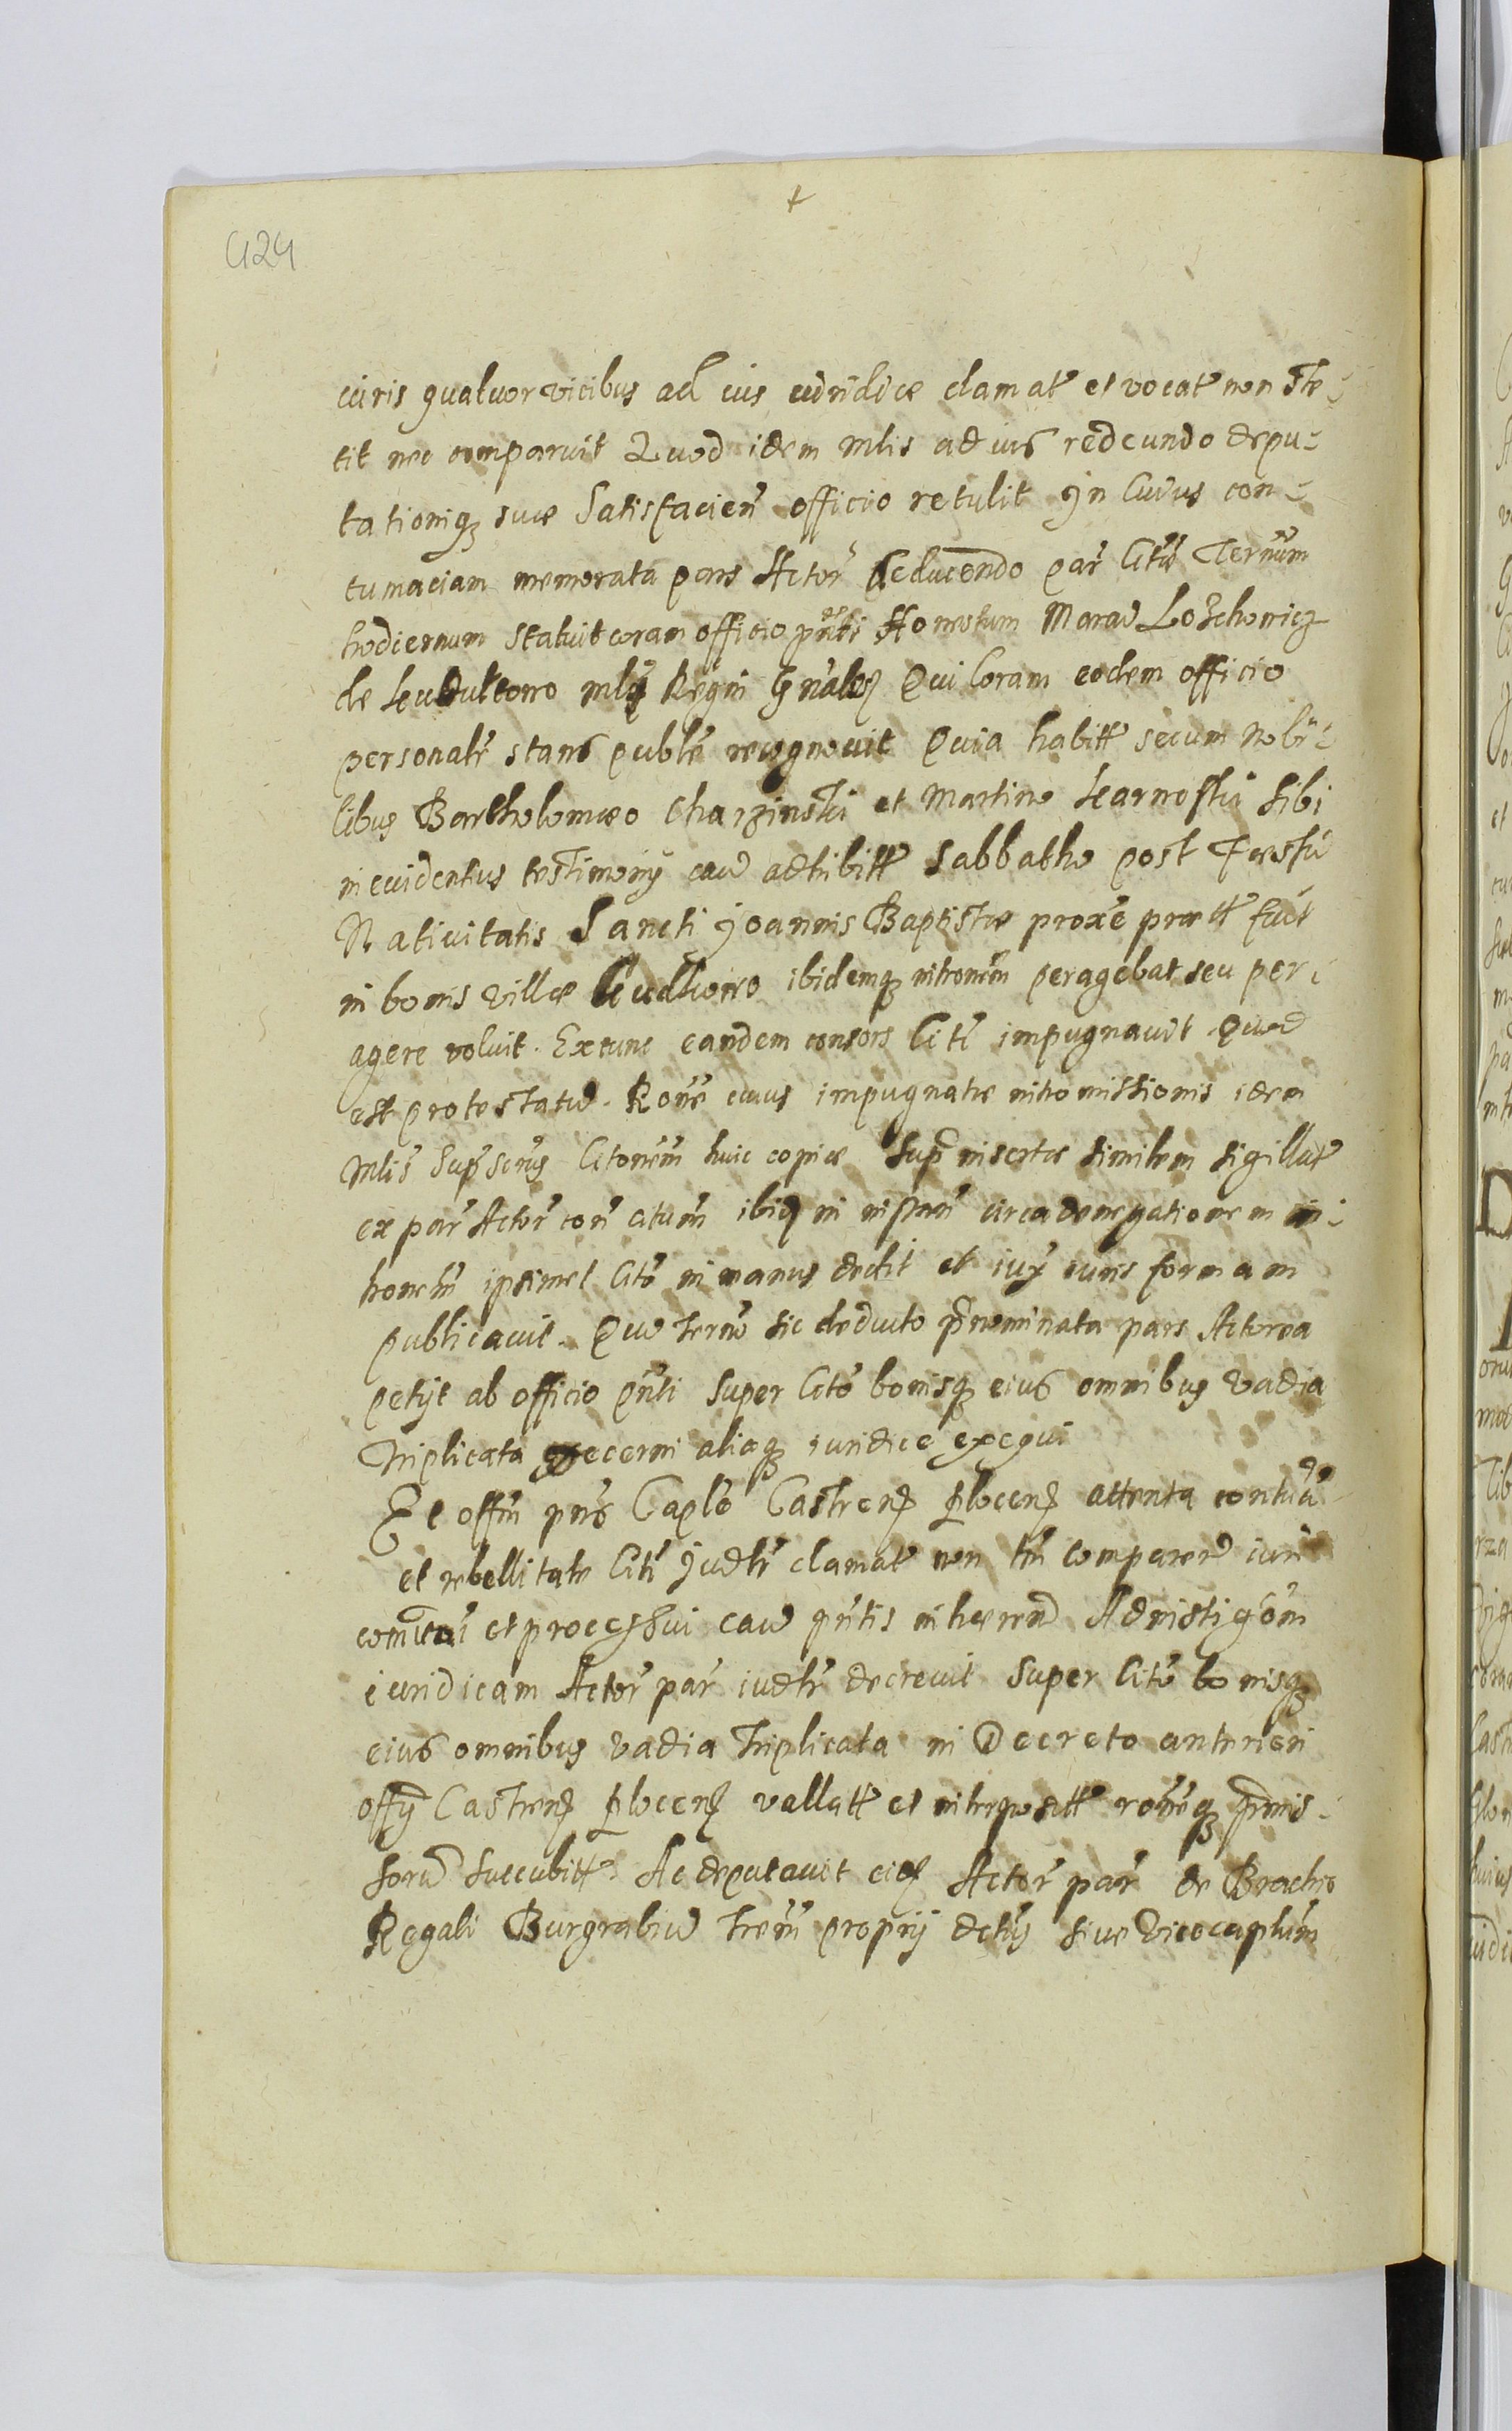 424
iuris quatuor vicibus ad ius iuridice clamat et vocat non ste-
tit nec comparuit Quod idem mlis ad ius redeundo depu-
tationiq suae Satisfacien officio retulit In Cuius con-
tumaciam memorata pars Actor deducendo par Citu Ternum
hodiernum statuit coram officio pnti Honestum
de mlis Regni Gnalis Qui Coram eodem officio
personalr stans puble recognovit Quia habitt secum Nobi-
libus Bartholomaeo Charzinski et Martino Karnoski sibi
in evidentius testimonij cau adhibitt Sabbatho post Festu
Nativitatis Sancti Joannis Baptistae proxe praett fuit
in bonis villae ibidemq intronem peragebat seu per-
agere voluit. Extunc eandem consors Citi impugnavit Quod
est protestatu. Rone cuius impugnatae intromissionis idem
Mlis Citonem huic copiae Supra insertae similem sigillat
ex par Actor con citum ibid in circa denegationem in-
honem ipsimet Cito in manus dedit et iux iuris formam
publicavit. Quo terno sic deducto pnominata pars Actorea
petijt ab officio pnti super Cito bonisq eius omnibus vadia
Triplicata decerni aliaq iuridice exequi
Et offm pns Caple Castren Plocen attenta contua
et rebellitate Citi Judlr clamat non tn comparen iuri
coi et processui cau pntis inhaeren Ad
iuridicam Actor par iudlr decrevit super Cito bonisq
eius omnibus vadia Triplicata in Decreto anteriori
offij Castren Plocen vallatt et interposatt roneq pmis-
soru succubitt. Ac deputavit eid Actor par de Brachio
Regali Burgrabiu propij sive Vicecaplum